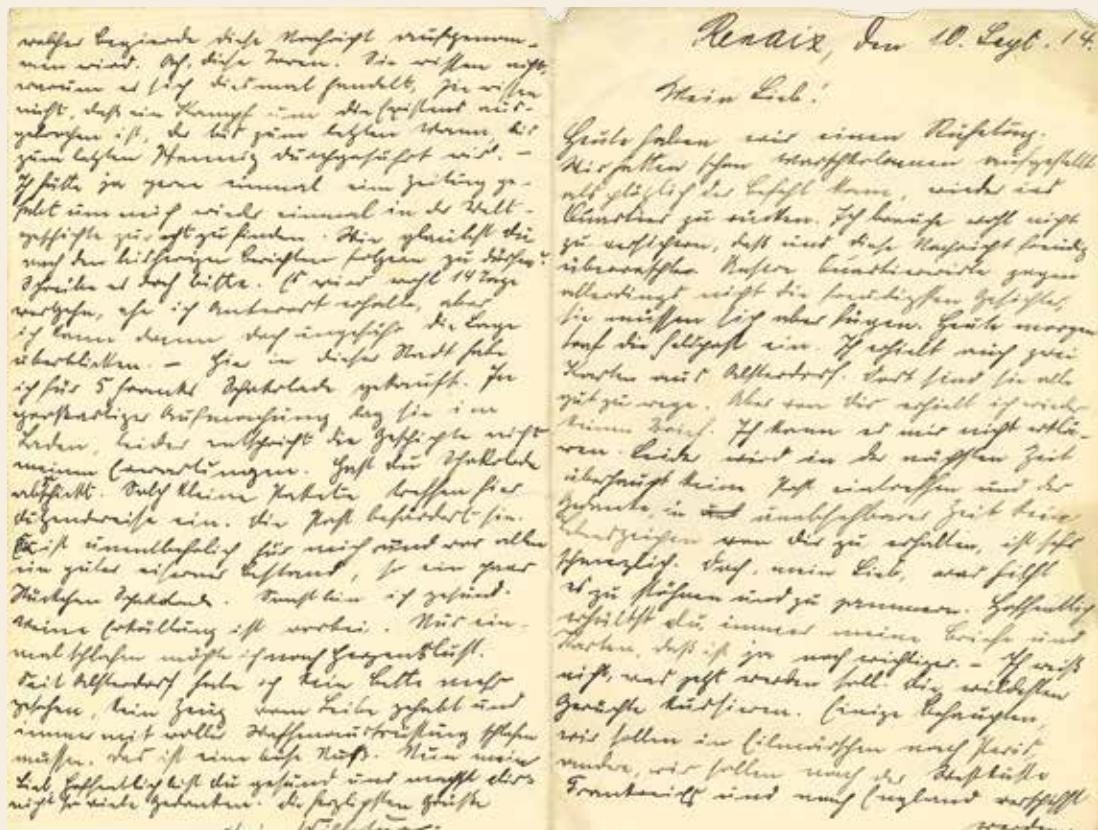 Renaix, den 10. Sept. 14.
Mein Lieb!
Heute haben wir einen Ruhetag.
Wir hatten schon Marschkolonnen aufgestellt
als plötzlich der Befehl kam, wieder ins
Quartier zu rücken. Ich brauche wohl nicht
zu versichern, daß uns diese Nachricht freudig
überraschte. Unsere Quartierwirte zogen
allerdings nicht die freudigsten Gesichter,
sie müssen sich aber fügen. Heute morgen
traf die Feldpost ein. Ich erhielt auch zwei
Karten aus Alsterdorf. Dort sind sie alle
gut zu wege. Aber von Dir erhielt ich wieder
keinen Brief. Ich kann es mir nicht erklä-
ren. Leider wird in der nächsten Zeit
überhaupt keine Post eintreffen und der
Gedanke, in unabsehbarer Zeit kein
Lebenszeichen von Dir zu erhalten, ist sehr
schmerzlich. Doch, mein Lieb, was hilft
es zu stöhnen und zu jammern. Hoffentlich
erhältst du immer meine Briefe und
Karten, daß ist ja noch wichtiger. – Ich weiß
nicht, was jetzt werden soll. Die wildesten
Gerüchte kursieren. Einige behaupten,
wir sollen in Eilmärschen nach Paris,
andere, wir sollen nach der Westküste
Frankreichs und nach England verschifft
werden
welcher Begierde diese Nachricht aufgenom-
men wird. Ach, diese Toren. Sie wissen nicht,
warum es sich diesmal handelt, sie wissen
nicht, daß ein Kampf um die Existenz aus-
gebrochen ist, der bis zum letzten Mann, bis
zum letzten Pfennig durchgeführt wird. –
Ich hätte ja gerne einmal eine Zeitung ge-
habt um mich wieder einmal in der Welt-
geschichte zurecht zu finden. Wie glaubst du
nach den bisherigen Berichten folgern zu dürfen?
Schreibe es doch bitte. Es wird wohl 14 Tage
vergehn, ehe ich Antwort erhalte, aber
ich kann dann doch ungefähr die Lage
überblicken. – Hier in dieser Stadt habe
ich für 5 Franks Schokolade gekauft. In
großartiger Aufmachung lag sie im
Laden, leider entspricht die Geschichte nicht
meinen Erwartungen. Hast du Schokolade
abschickt. Solch kleine Pakete treffen hier
dutzendweise ein. Die Post befördert sie.
Es ist unentbehrlich für mich und vor allem
ein guter eiserner Bestand, so ein paar
Stückchen Schokolade. Sonst bin ich gesund.
Meine Erkältung ist vorbei. Nur ein-
mal schlafen möchte ich nach Herzenslust.
Seit Alsterdorf habe ich kein Bette mehr
gesehen, kein Zeug vom Leibe gehabt und
immer mit voller Waffenausrüstung schlafen
müssen. Das ist eine böse Nuß. Nun mein
Lieb, hoffentlich bist du gesund und machst dir
nicht zu viele Gedanken. Die herzlichsten Grüße